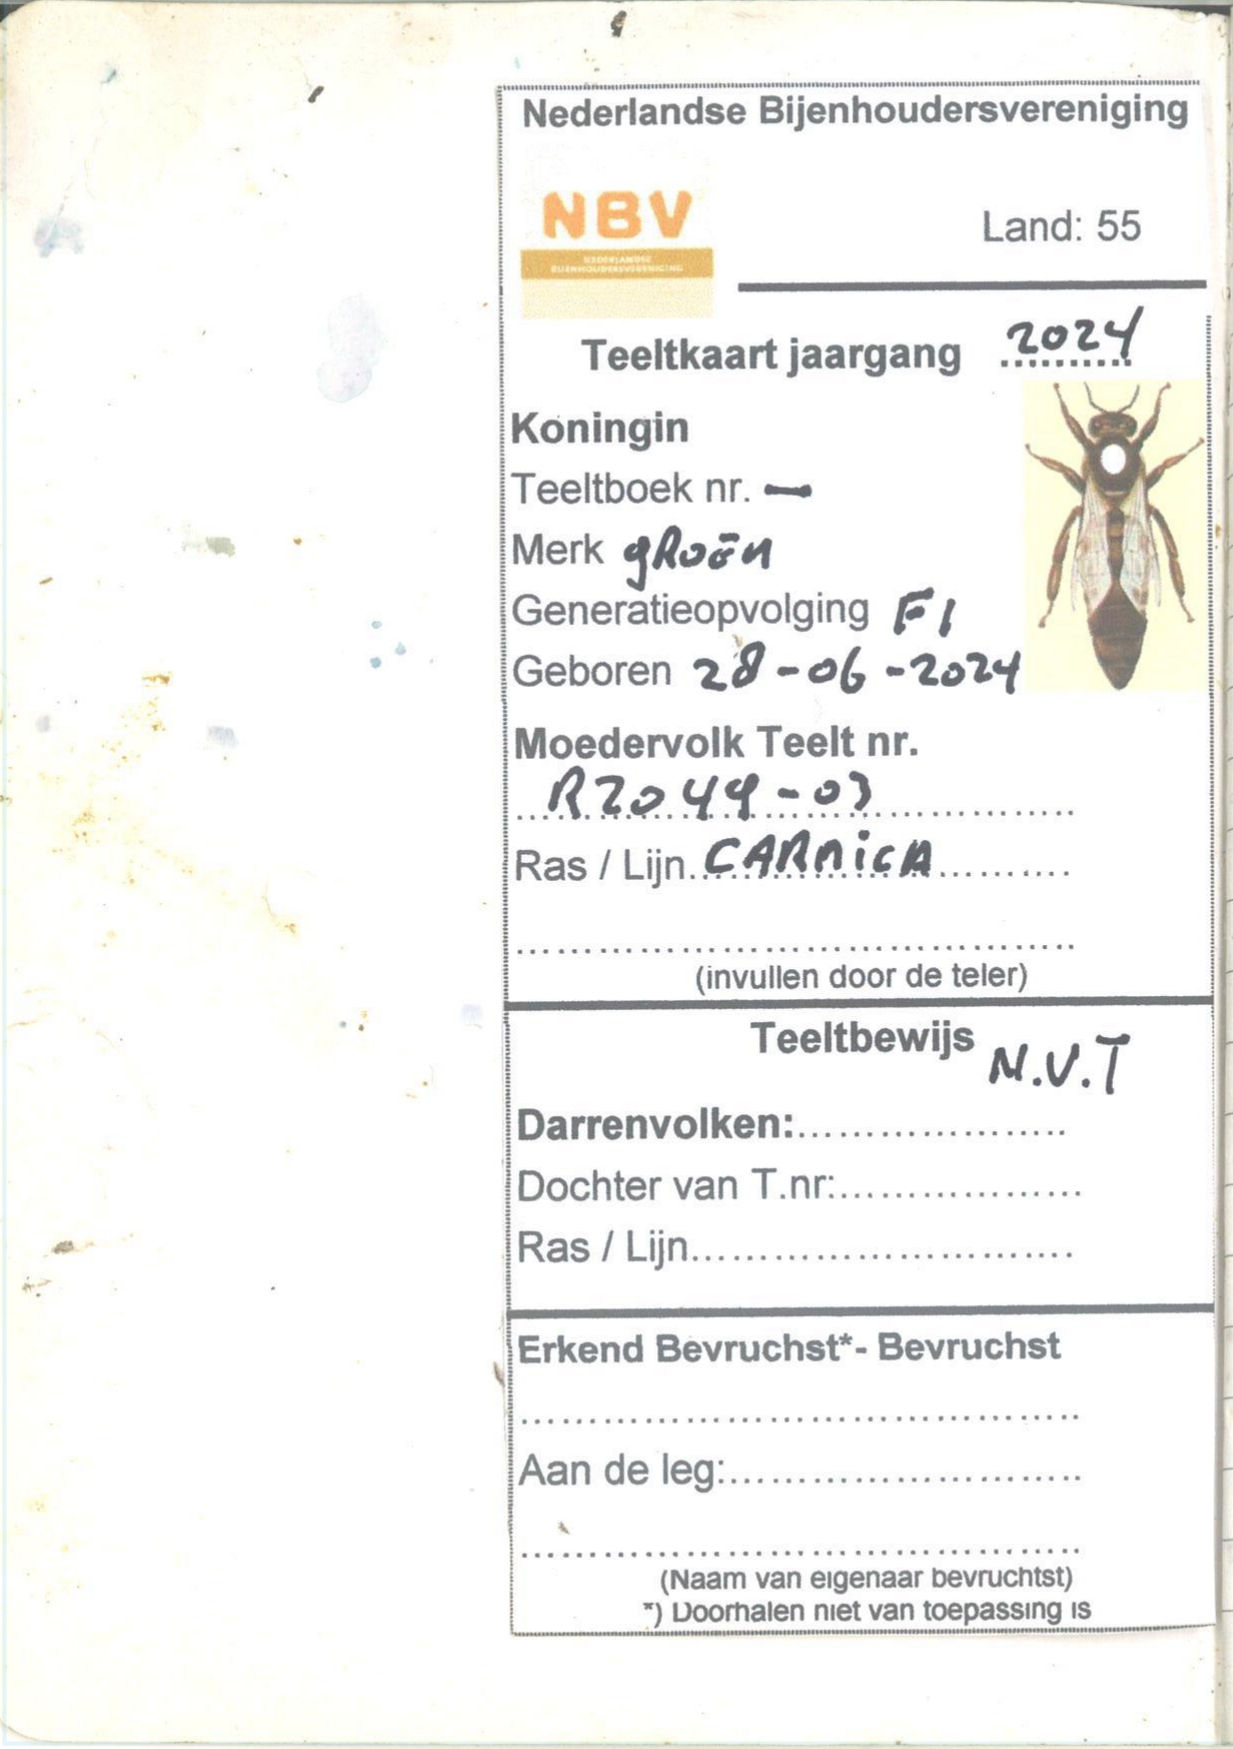 Nederlandse Bijenhoudersvereniging
NBV
NEDERLANDSE
BIJENHOUDERSVERENIGING
Land: 55
Teeltkaart jaargang 2024
Koningin
Teeltboek nr. —
Merk gRoēn
Generatieopvolging F1
Geboren 28-06-2024
Moedervolk Teelt nr.
R2044-03
Ras / Lijn. CARniCA
(invullen door de teler)
Teeltbewijs N.V.T
Darrenvolken:
Dochter van T.nr:
Ras / Lijn
Erkend Bevruchst*- Bevruchst
Aan de leg:
(Naam van eigenaar bevruchtst)
*) Doorhalen niet van toepassing is